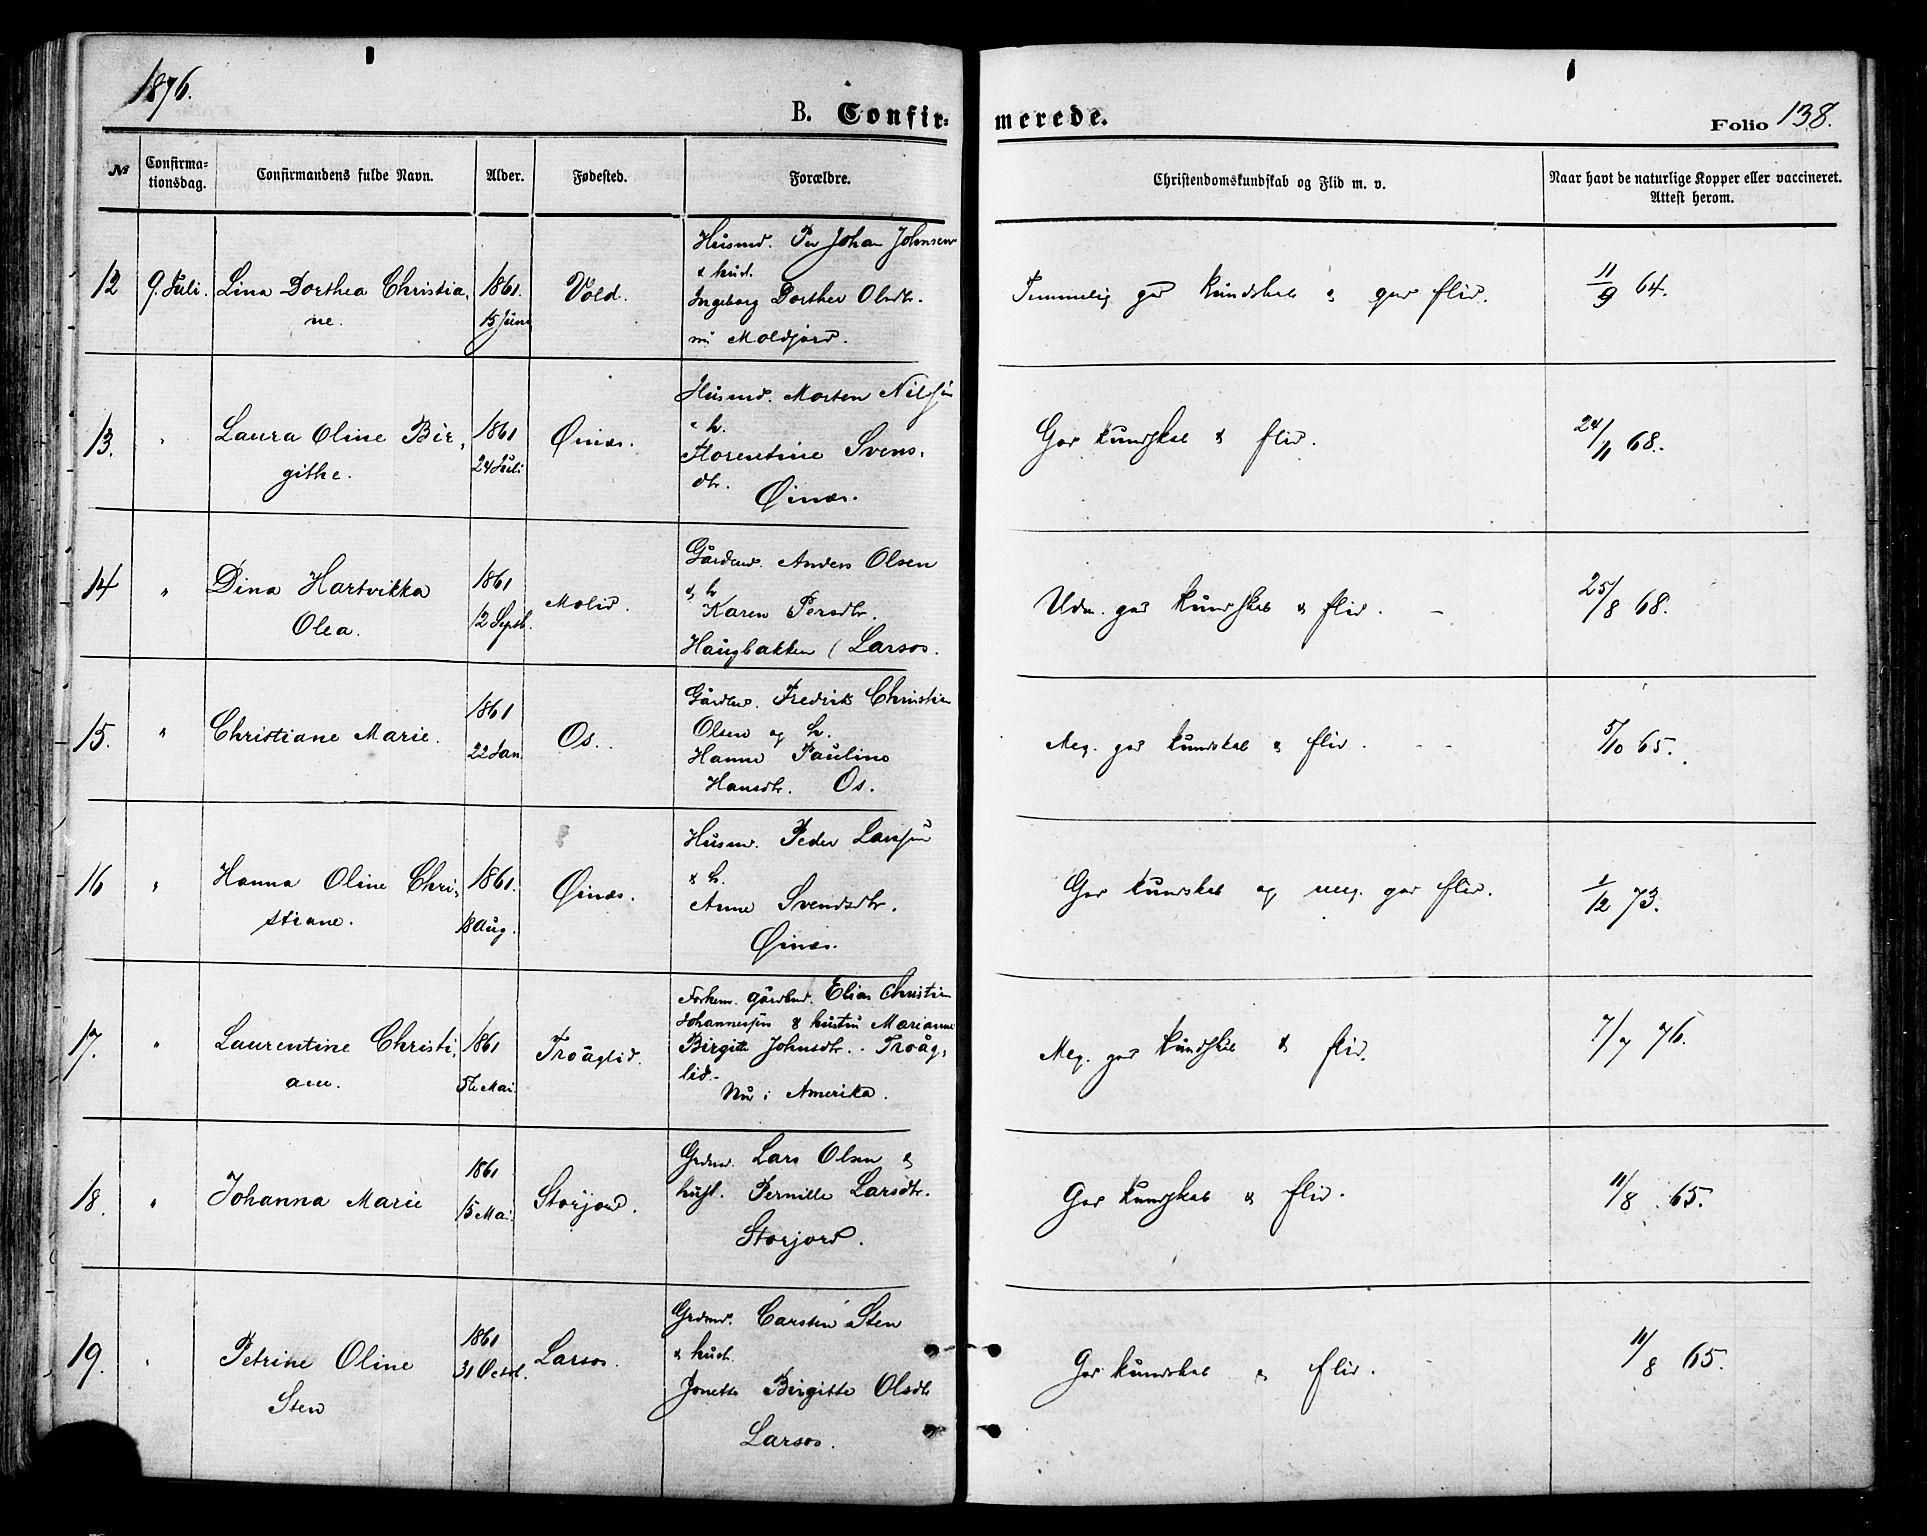 1876.
B. Confirmerede.
Folio 138.
№
Confirmationsdag.
Confirmandens fulde Navn.
Alder.
Fødested.
Forældre.
Christendomskundskab og Flid m. v.
Naar havt de naturlige Kopper eller vaccineret.
Attest herom.
12
9. Juli.
Lina Dorthea Christia,
ne.
1861.
15 Juni
Vold.
Husmd. Per Johan Johnsen
& hust.
Ingeborg Dorthea Olsdtr.
Moldjord.
Temmelig god kundskab & god flid.
11/9 64.
13.
"
Laura Oline Bir,
githe.
1861
24 Juli
Øinæs.
Husmd. Morten Nilsen
& h.
Florentine Svens,
dtr.
Øinæs.
God kundskab & flid.
24/11 68.
14
"
Dina Hartvikka
Olea.
1861
12 Septb.
Molid.
Gårdmd. Anders Olsen
& h
Karen Persdtr.
Haugbakken ( Larsos.
Udm. god kundskab & flid. -
25/8 68.
15.
"
Christiane Marie.
1861
22 Jan.
Os.
Gårdbr. Fredrik Christian
Olsen og h.
Hanne Pauline
Hansdtr. Os.
Meg. god kundskab & flid. - -
5/10 65.
16
"
Hanna Oline Chri,
stiane.
1861.
18 Aug.
Øinæs.
Husmd. Peder Larsen
& h.
Anne Svendsdtr.
Øinæs.
God kundskab og meg. god flid.
1/12 73.
17.
"
Laurentine Christi,
ane.
1861
5te Mai.
Troåglid.
Forhem. gårdbrd. Elias Christian
Johannessen & hustru Marianne
Birgitte Johnsdtr. - Troåg,
lid. -
Nu i Amerika.
Meg. god kundskab & flid.
7/7 76.
18.
"
Johanna Marie
1861
15 Mai.
Storjord.
Grdmd. Lars Olsen &
hust. Pernille Larsdtr.
Storjord.
God kundskab & flid.
11/8 65.
19.
"
Petrine Oline
Sten
1861
31 Octob.
Larsos.
Grdmd. Carsten Sten
& hust.
Jonette Birgitte Olsdtr
Larsos.
God kundskab & flid.
11/8 65.